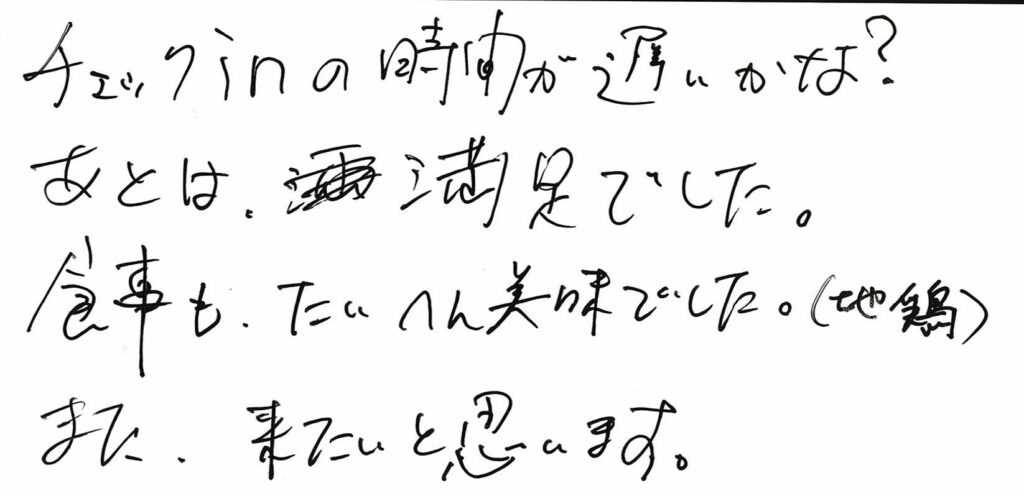 チェックinの時間が遅いかな?
あとは、満足でした。
食事も、たいへん美味でした。(地鶏)
また、来たいと思います。